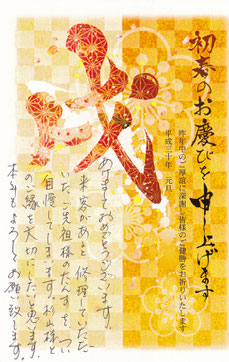 初春のお慶びを申し上げます
昨年中のご厚誼に深謝し皆様のご健勝をお祈りいたします
平成三十年 元旦
戌
あけましておめでとうございます。
来客があると修理していただ
いた、ご先祖様のたんすを、つい
自慢してします。杉山様と
のご縁を大切にしたいと思います。
本年もよろしくお願い致します。